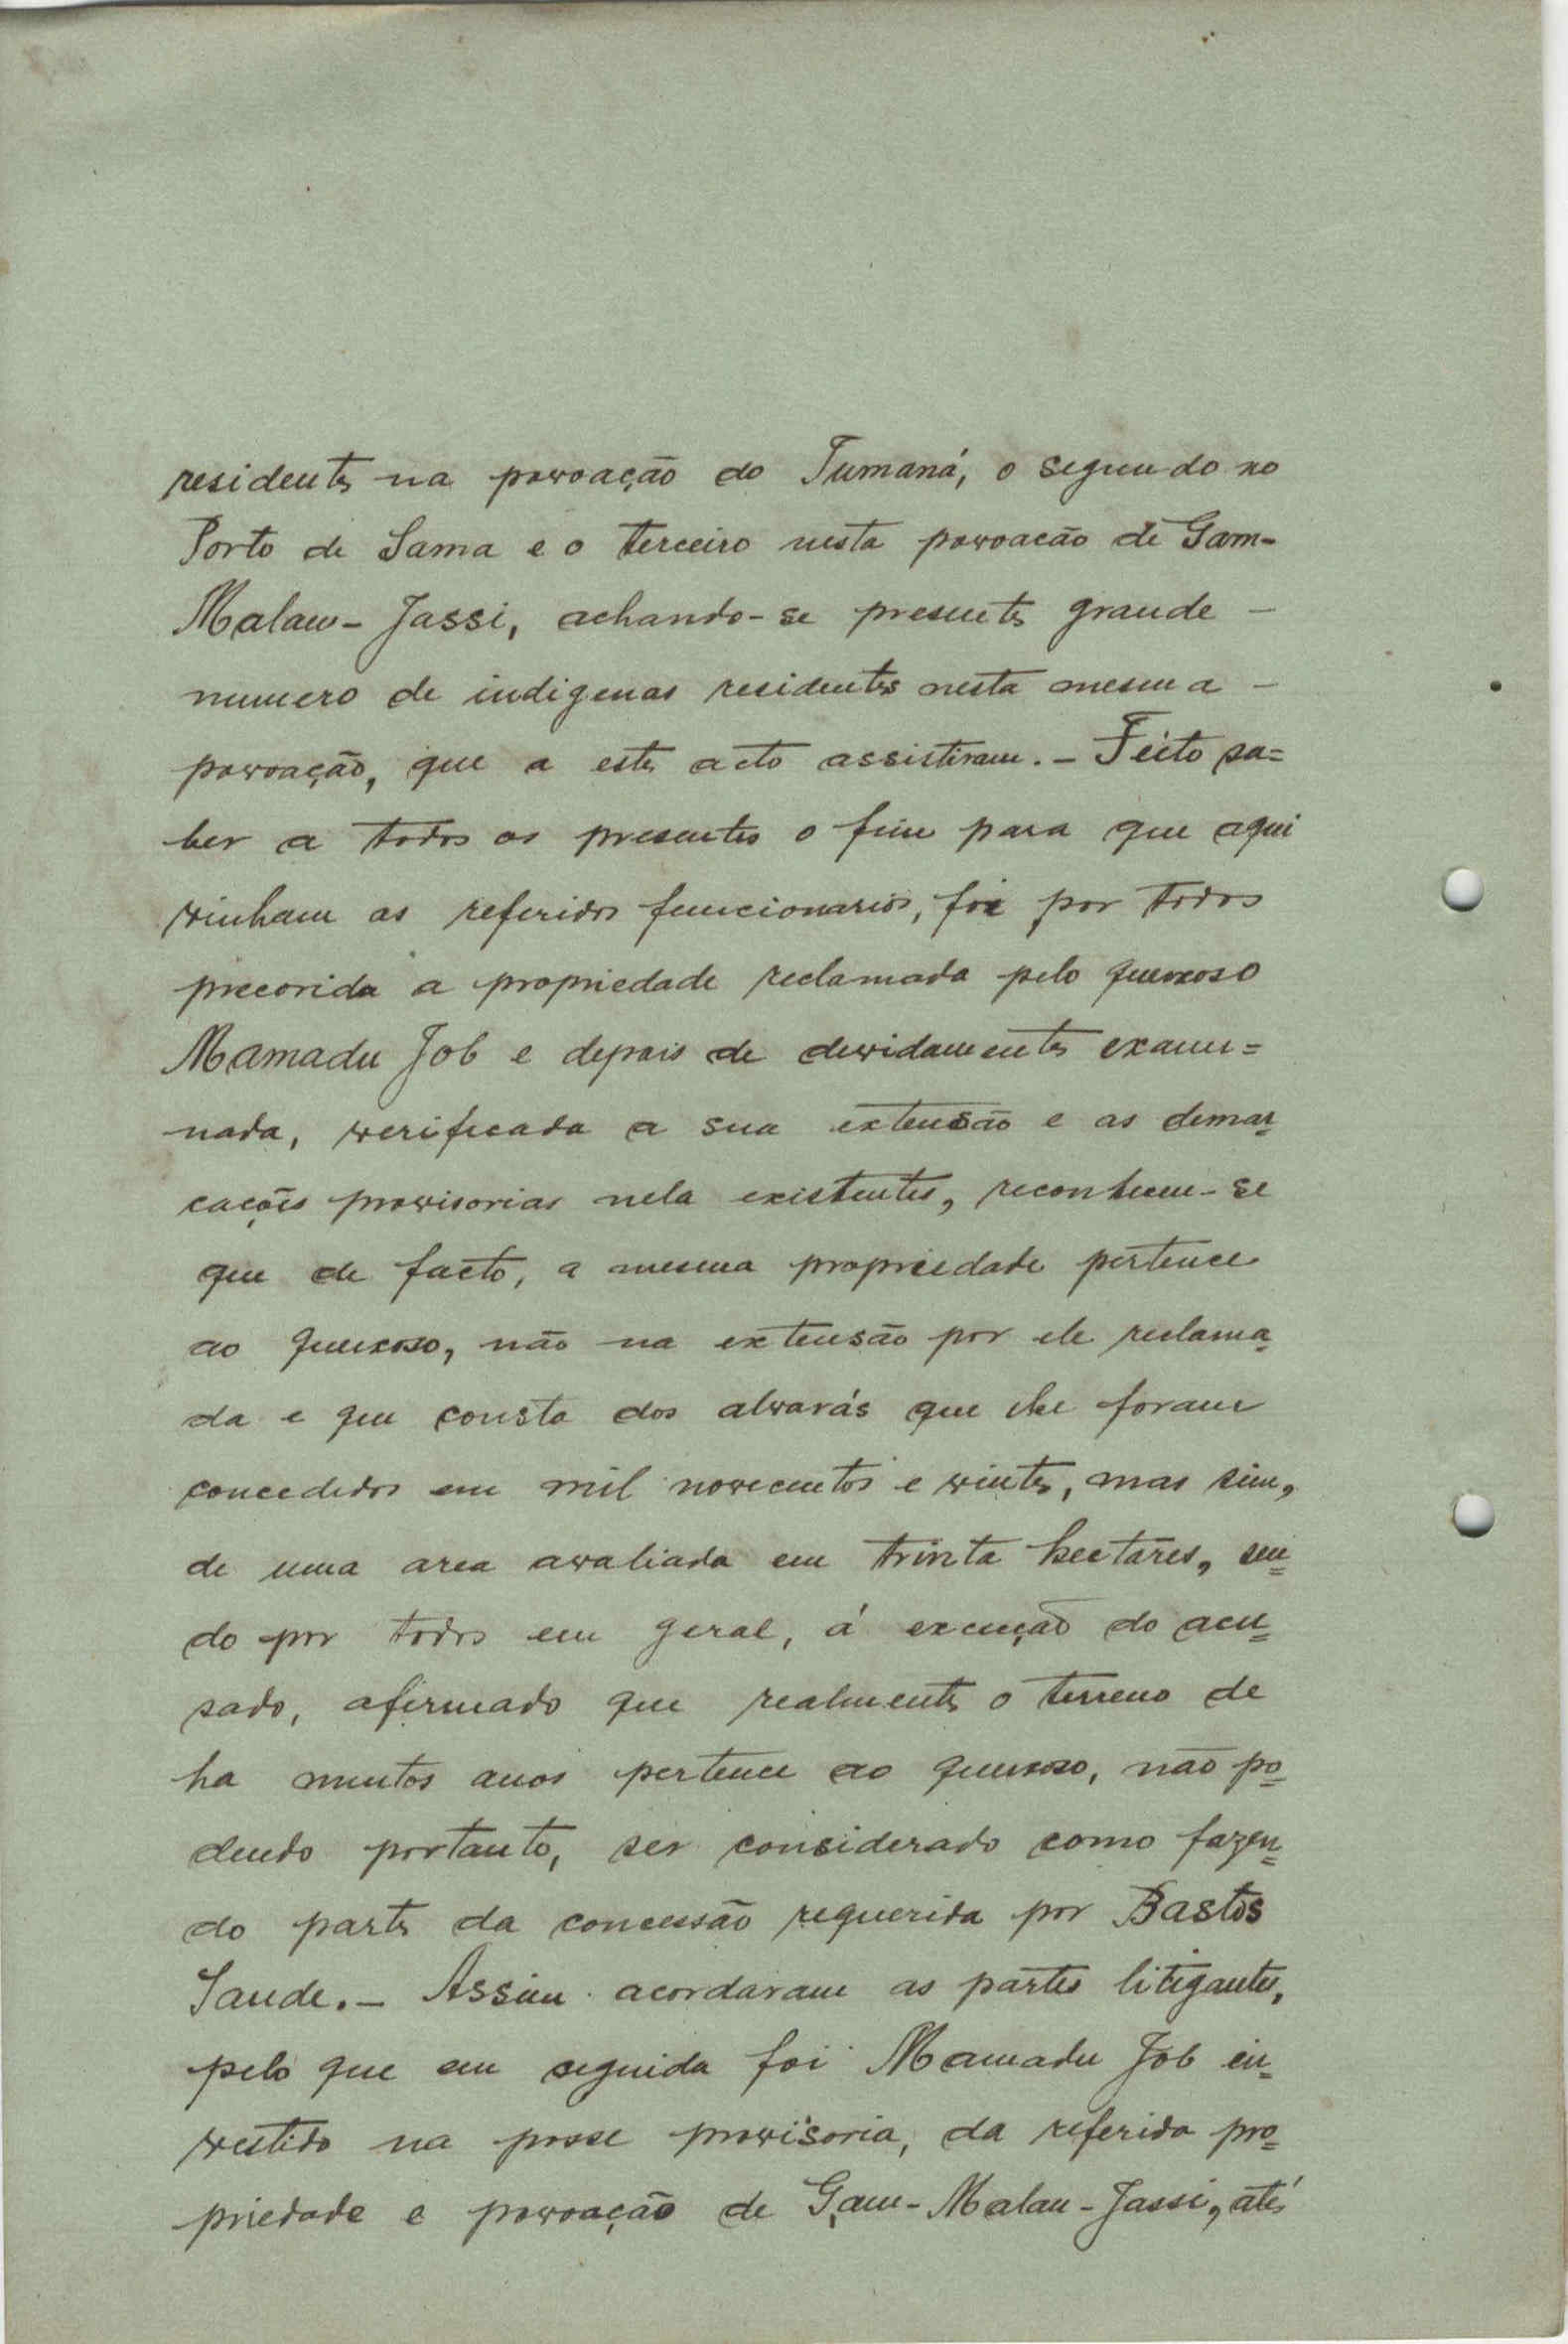 residente na povoação do Tumaná, o segundo no
Porto de Sama e o terceiro nesta povoacão de Gam-
Malam-Jassi, achando-se presente grande -
numero de indigenas residentes nesta mesma -
povoação, que a este acto assistiram. - Feito sa=
ber a todos os presentes o fim para que aqui
vinham os referidos funcionarios, foi por todos
precorida a propriedade reclamada pelo queixoso
Mamadu Job e depois de devidamente exami=
nada, verificada a sua extensão e as demar=
cações provisorias nela existentes, reconheceu-se
que de facto, a mesma propriedade pertence
ao queixoso, não na extensão por ele reclama=
da e que consta dos alvarás que lhe foram
concedidos em mil novecentos e vinte, mas sim,
de uma area avaliada em trinta hectares, sen=
do por todos em geral, á exceução do acu=
sado, afirmado que realmente o terreno de
ha muitos anos pertence ao queixoso, não po=
dendo portanto, ser considerado como fazen=
do parte da concessão requerida por Bastos
Saude. - Assim acordaram as partes litigantes,
pelo que em seguida foi Mamadu Job in=
vestido na posse provisoria, da referida pro=
priedade e povoação de Gam-Malam-Jassi, até